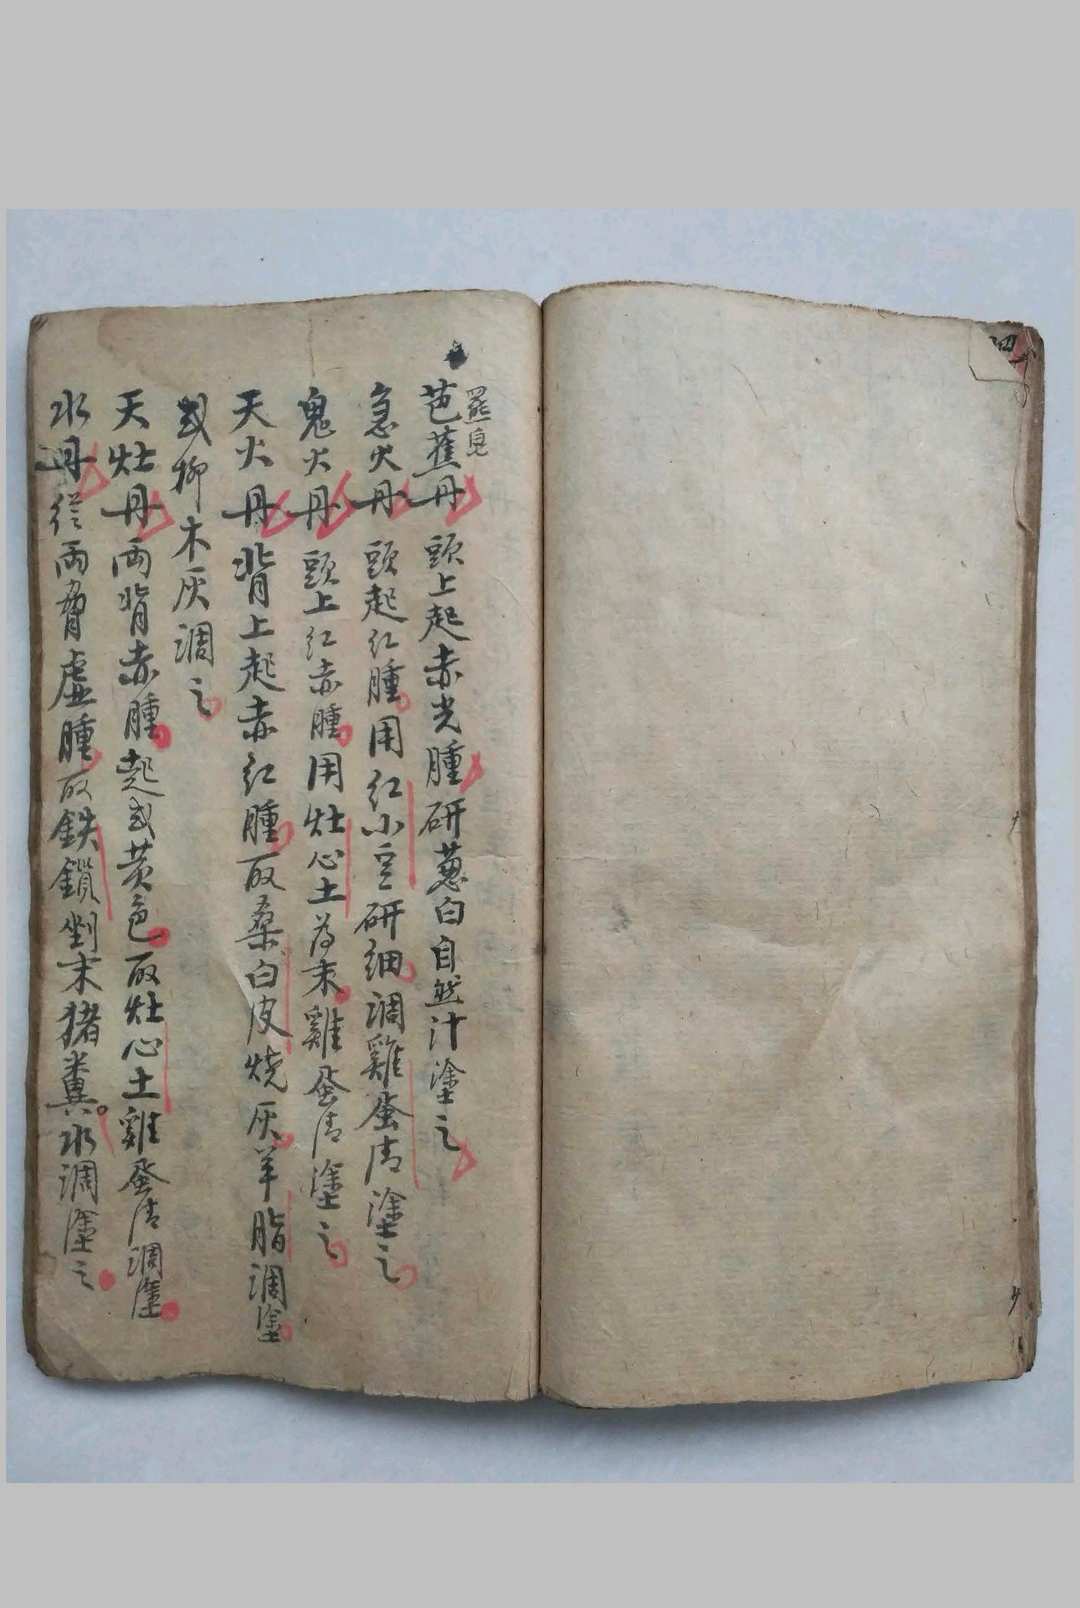 芭蕉丹 頭上起赤光腫研蔥白自然汁塗之
急火丹 頭起红腫用红小豆研細調雞蛋清塗之
鬼火丹 頭上红赤腫用灶心土為末雞蛋清塗之
天火丹 背上起赤红腫取桑白皮燒灰羊脂調塗
或柳木灰調之
天灶丹 両背赤腫起或黄色取灶心土雞蛋清調塗
水丹 從両脅虛腫取鉄鎖剉末猪糞水調塗之